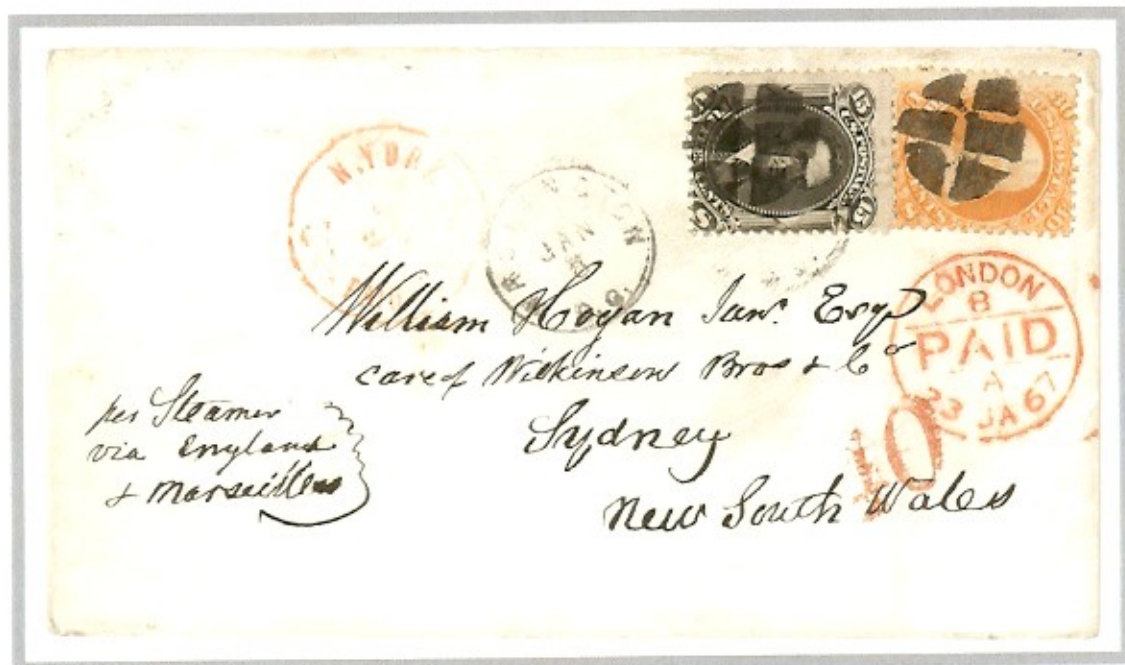 N. YORK
JAN
8
15
U.S. POSTAGE
15
30
LONDON
8
PAID
A
23 JA 67
William Hogan Junr. Esqr
care of Wilkinson Bros & Co
Sydney
New South Wales
per Steamer
via England
& Marseilles
10